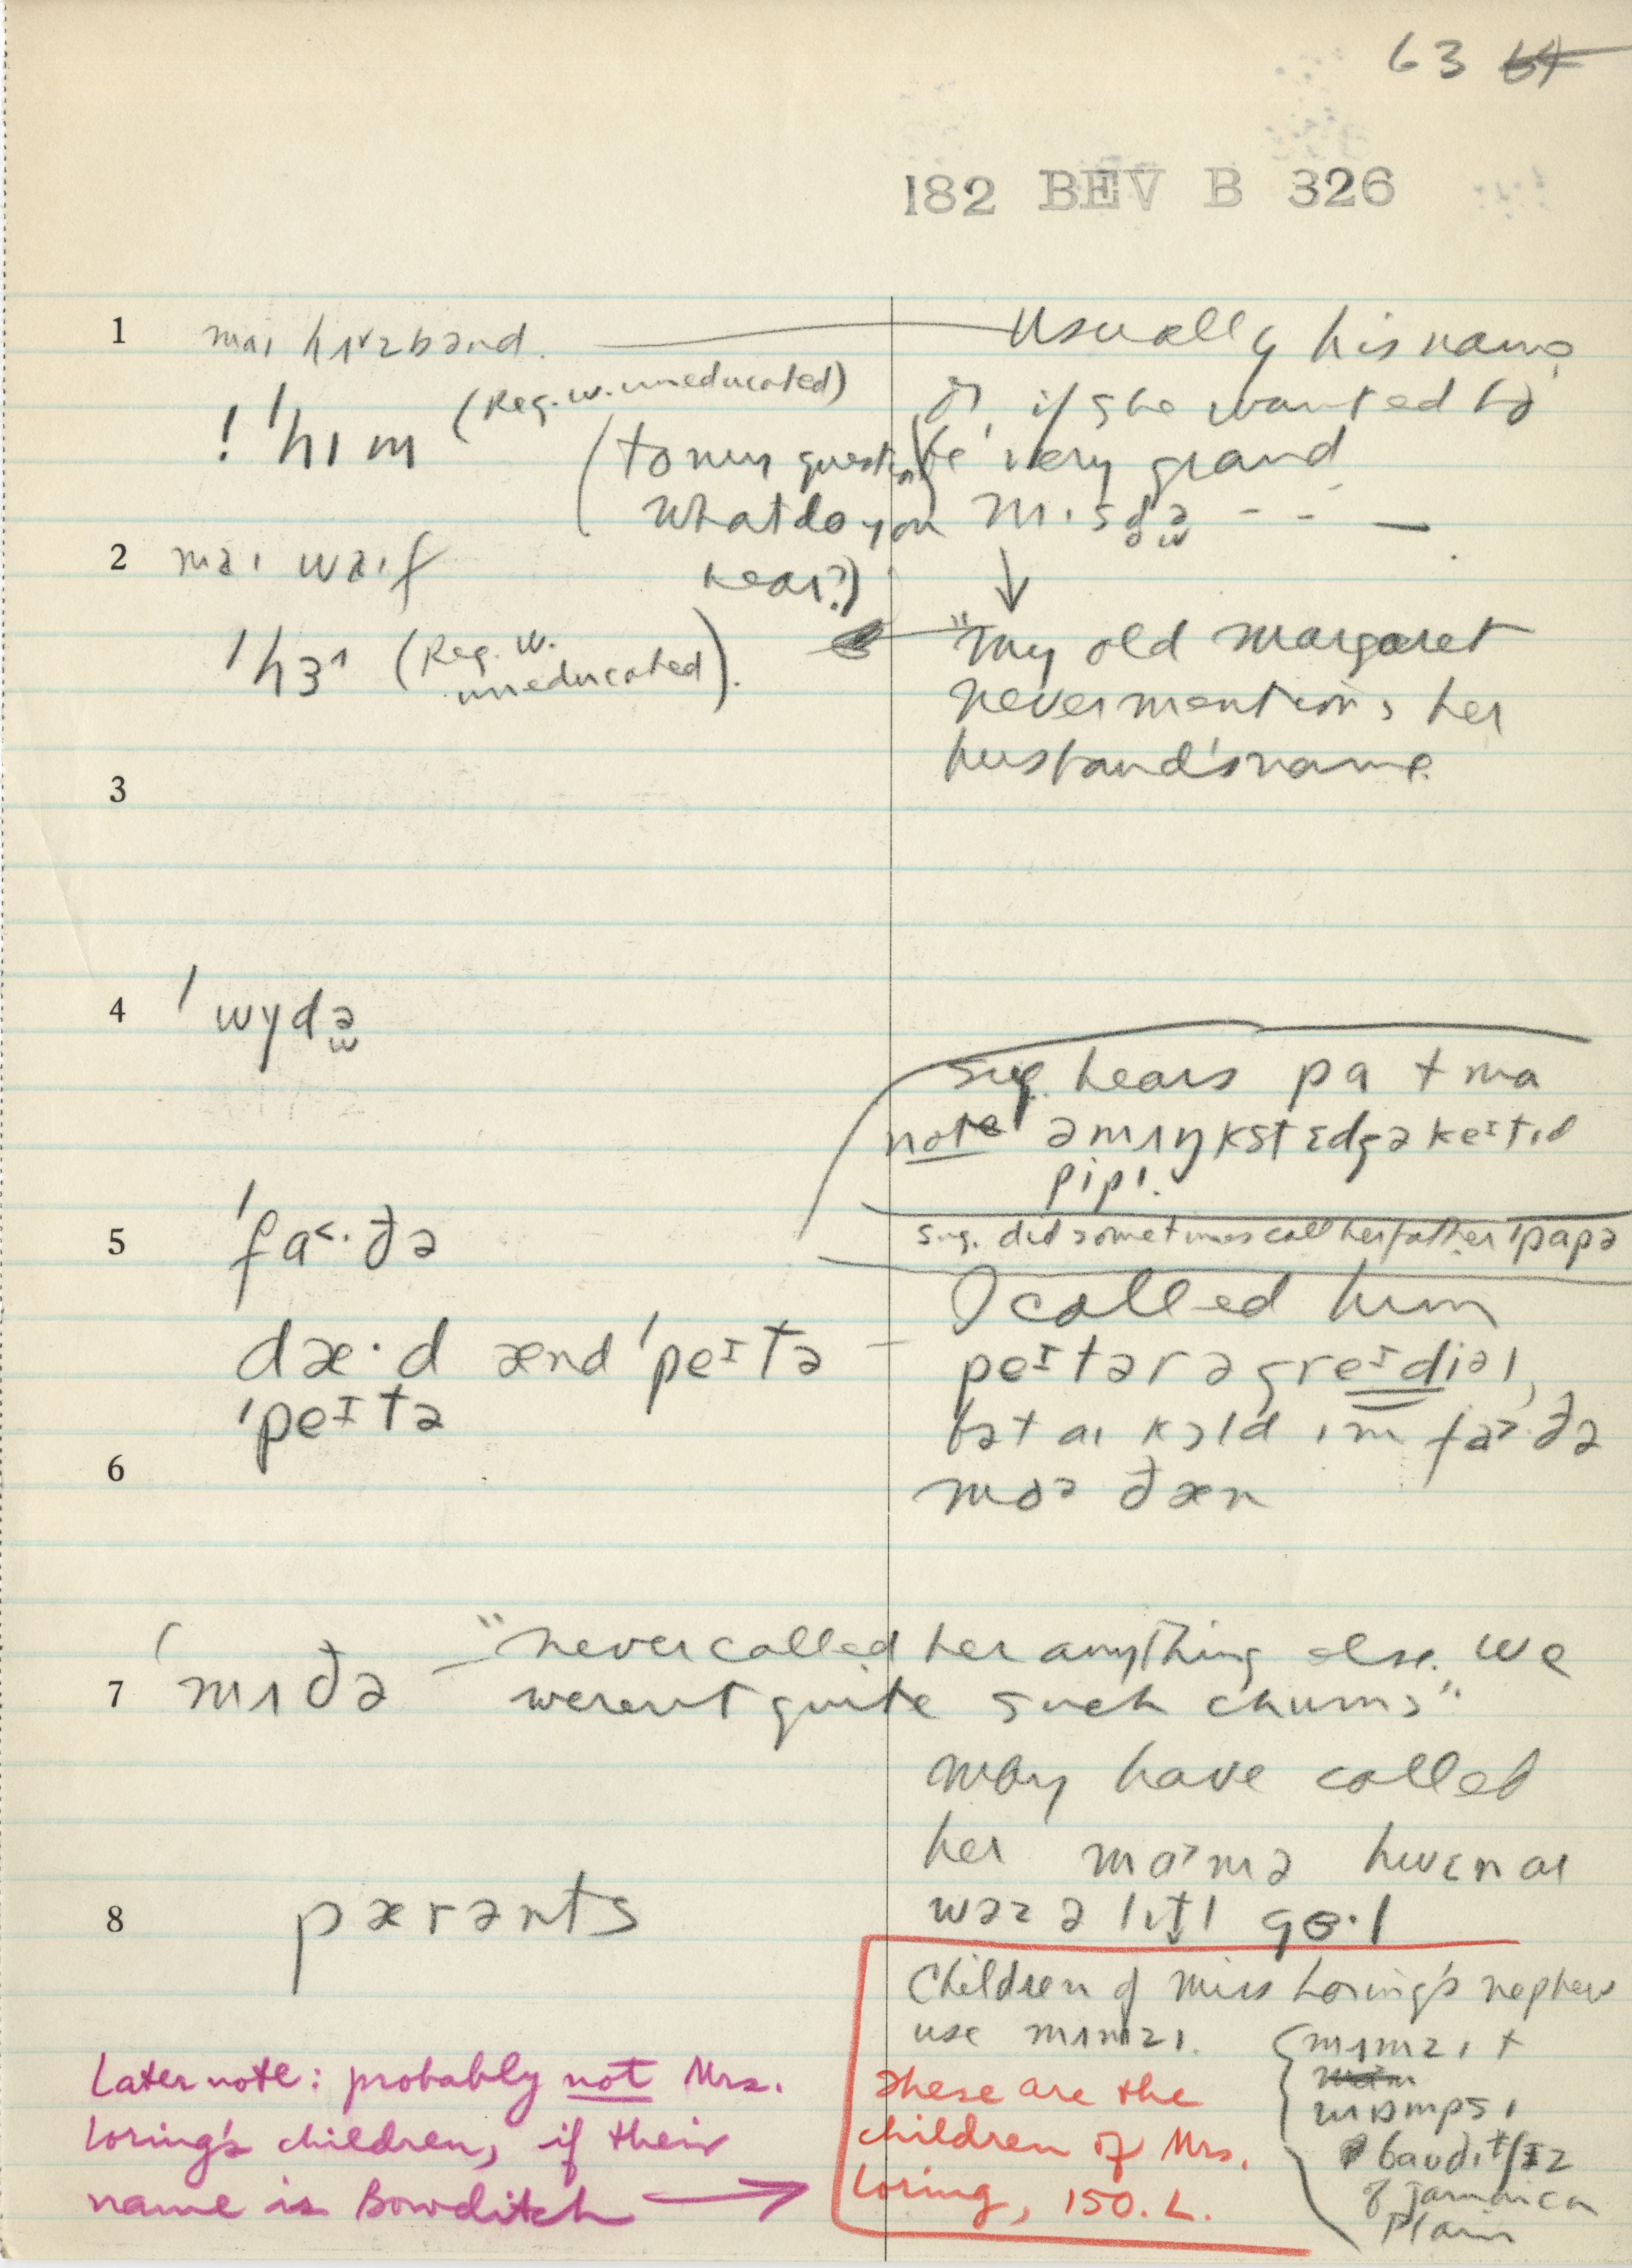 63 64
182 BEV B 326
1 mai hʌzbənd. Usually his name
! 'hɪm (Reg. w. uneducated) or, if she wanted to
(to my question be very grand
What do you mɪsdə - - -
hear?)
2 mai waif
'hɜ (Reg. w. uneducated). "my old Margaret
never mentions her
husband's name.
3
4 'wydə
Sug. hears pa + ma
note
pipi.
5 'fa<·ðə
Sug. did sometimes call her father 'papə
I called him
dæ·d ænd 'peɪtə — peɪtər ə greɪdiəl,
'peɪtə
bət ai kɔld ɪm fa>·ðə
6
mɔə ðæn
7 'mʌðə — "never called her anything else. We
weren't quite such chums".
may have called
her ma>mə hwɛn ai
wəz ə lɪtl gɵ·l
8 pærənts
Children of Miss Loring's nephew
use mʌmzi. {mʌmzi +
mɒmpsi
baudɪtʃɪz
of Jamaica
Plain
These are the
children of Mrs.
Loring, 150. L.
Later note: probably not Mrs.
Loring's children, if their
name is Bowditch →